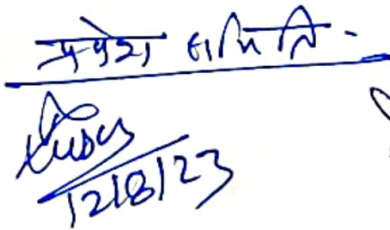 प्रवेश समिति -
12/8/23